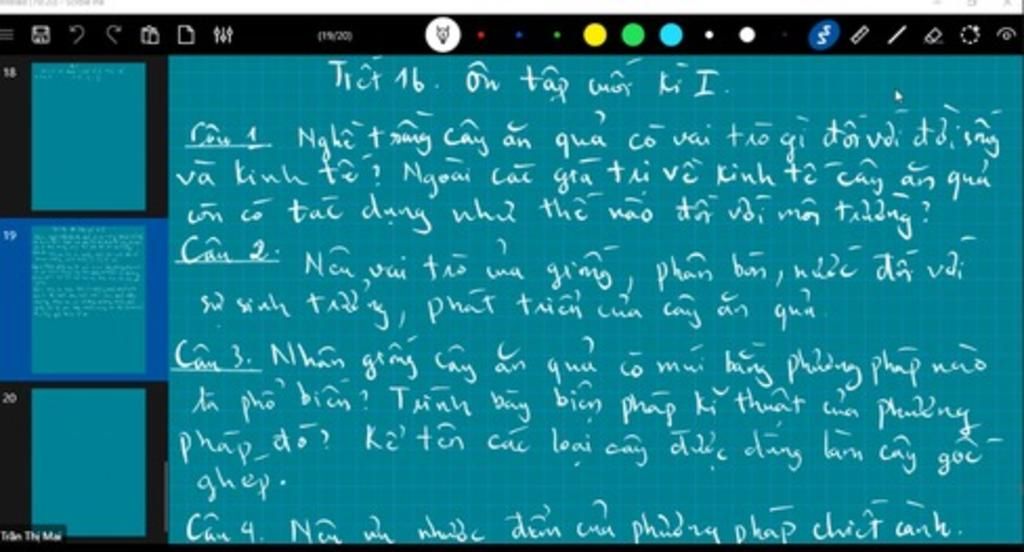 (19/20)
18
19
20
Tiết 16. Ôn tập cuối kì I.
Câu 1 Nghề trồng cây ăn quả có vai trò gì đối với đời sống
và kinh tế? Ngoài các giá trị về kinh tế cây ăn quả
còn có tác dụng như thế nào đối với môi trường?
Câu 2. Nêu vai trò của giống, phân bón, nước đối với
sự sinh trưởng, phát triển của cây ăn quả.
Câu 3. Nhân giống cây ăn quả có múi bằng phương pháp nào
là phổ biến? Trình bày biện pháp kĩ thuật của phương
pháp đó? Kể tên các loại cây được dùng làm cây gốc
ghép.
Câu 4. Nêu ưu nhược điểm của phương pháp chiết cành.
Trần Thị Mai